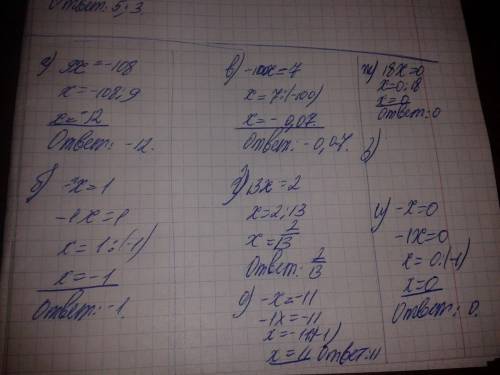 Ответ: 5; 3.
а) 9x = -108
x = -108:9
x = -12
Ответ: -12.
б) -x = 1
-1x = 1
x = 1:(-1)
x = -1
Ответ: -1.
в) -100x = 7
x = 7:(-100)
x = -0,07.
Ответ: -0,07.
13x = 2
x = 2:13
x = 2/13
Ответ: 2/13
е) -x = -11
-1x = -11
x = 11 Ответ: 11
ж) 18x = 0
x = 0:18
x = 0
Ответ: 0
и) -x = 0
-1x = 0
x = 0:(-1)
x = 0
Ответ: 0.